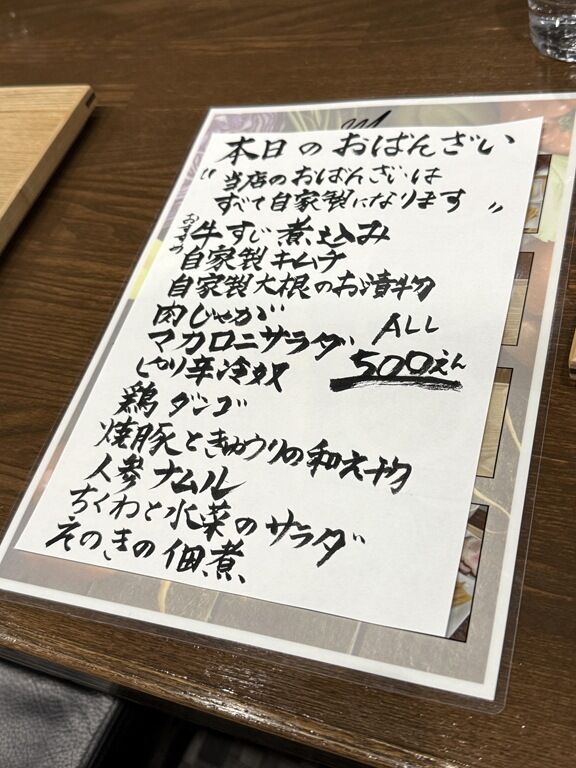 本日のおばんざい
"当店のおばんざいは
すべて自家製になります"
おすすめ
牛すじ煮込み
自家製キムチ
自家製大根のお漬物
肉じゃが
マカロニサラダ
ピリ辛冷奴
鶏ダンゴ
焼豚ときゅうりの和え物
人参ナムル
ちくわと水菜のサラダ
えのきの佃煮
ALL
500えん